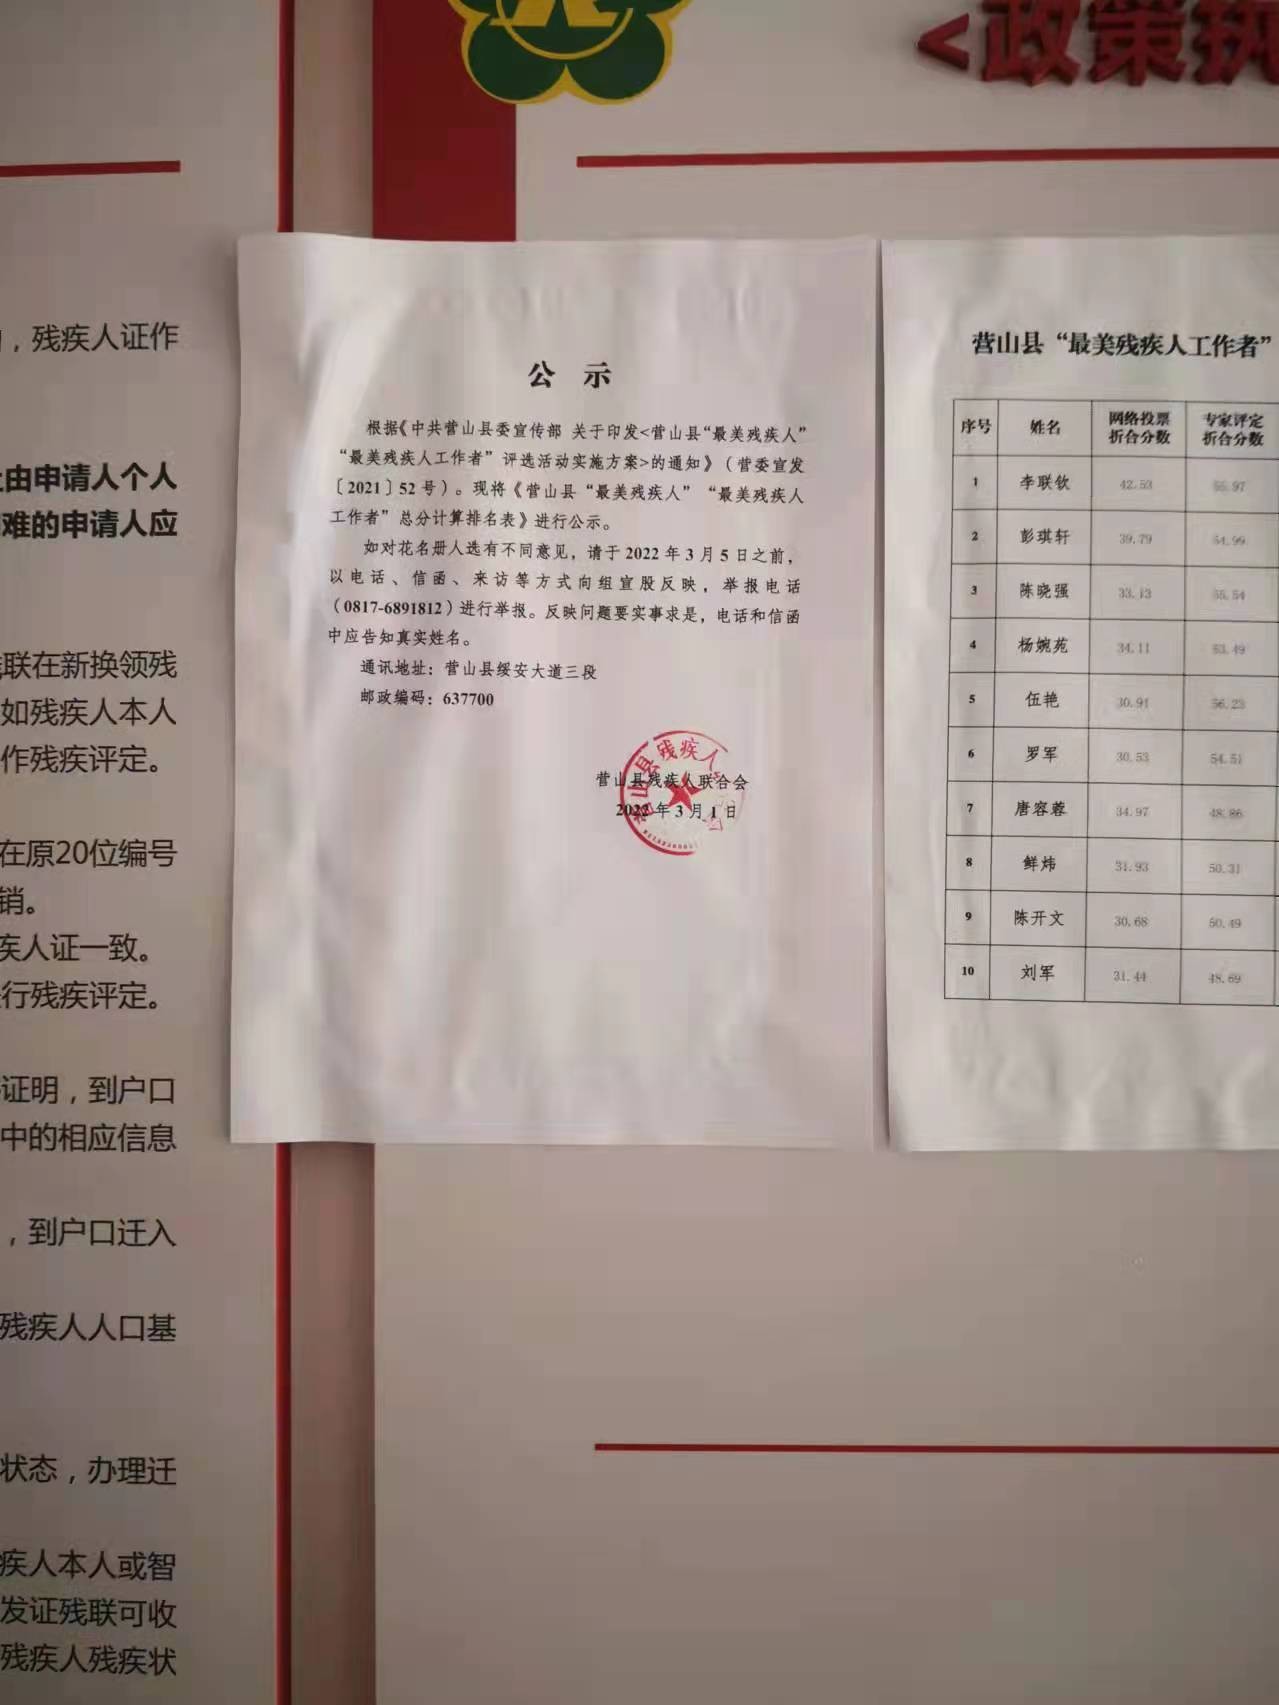 <政策执
，残疾人证作
由申请人个人
难的申请人应
联在新换领残
如残疾人本人
作残疾评定。
在原20位编号
销。
疾人证一致。
行残疾评定。
证明，到户口
中的相应信息
，到户口迁入
残疾人人口基
状态，办理迁
疾人本人或智
发证残联可收
残疾人残疾状
公 示
根据《中共营山县委宣传部 关于印发<营山县“最美残疾人”
“最美残疾人工作者”评选活动实施方案>的通知》（营委宣发
〔2021〕52号）。现将《营山县“最美残疾人”“最美残疾人
工作者”总分计算排名表》进行公示。
如对花名册人选有不同意见，请于2022年3月5日之前，
以电话、信函、来访等方式向组宣股反映，举报电话
（0817-6891812）进行举报。反映问题要实事求是，电话和信函
中应告知真实姓名。
通讯地址：营山县绥安大道三段
邮政编码：637700
营山县残疾人
营山县残疾人联合会
2022年3月1日
营山县“最美残疾人工作者”
序号 姓名 网络投票折合分数 专家评定折合分数
1 李联钦 42.53 55.97
2 彭琪轩 39.79 54.99
3 陈晓强 33.13 55.54
4 杨婉苑 34.11 53.49
5 伍艳 30.91 56.23
6 罗军 30.53 54.51
7 唐容蓉 34.97 48.86
8 鲜炜 31.93 50.31
9 陈开文 30.68 50.49
10 刘军 31.44 48.69